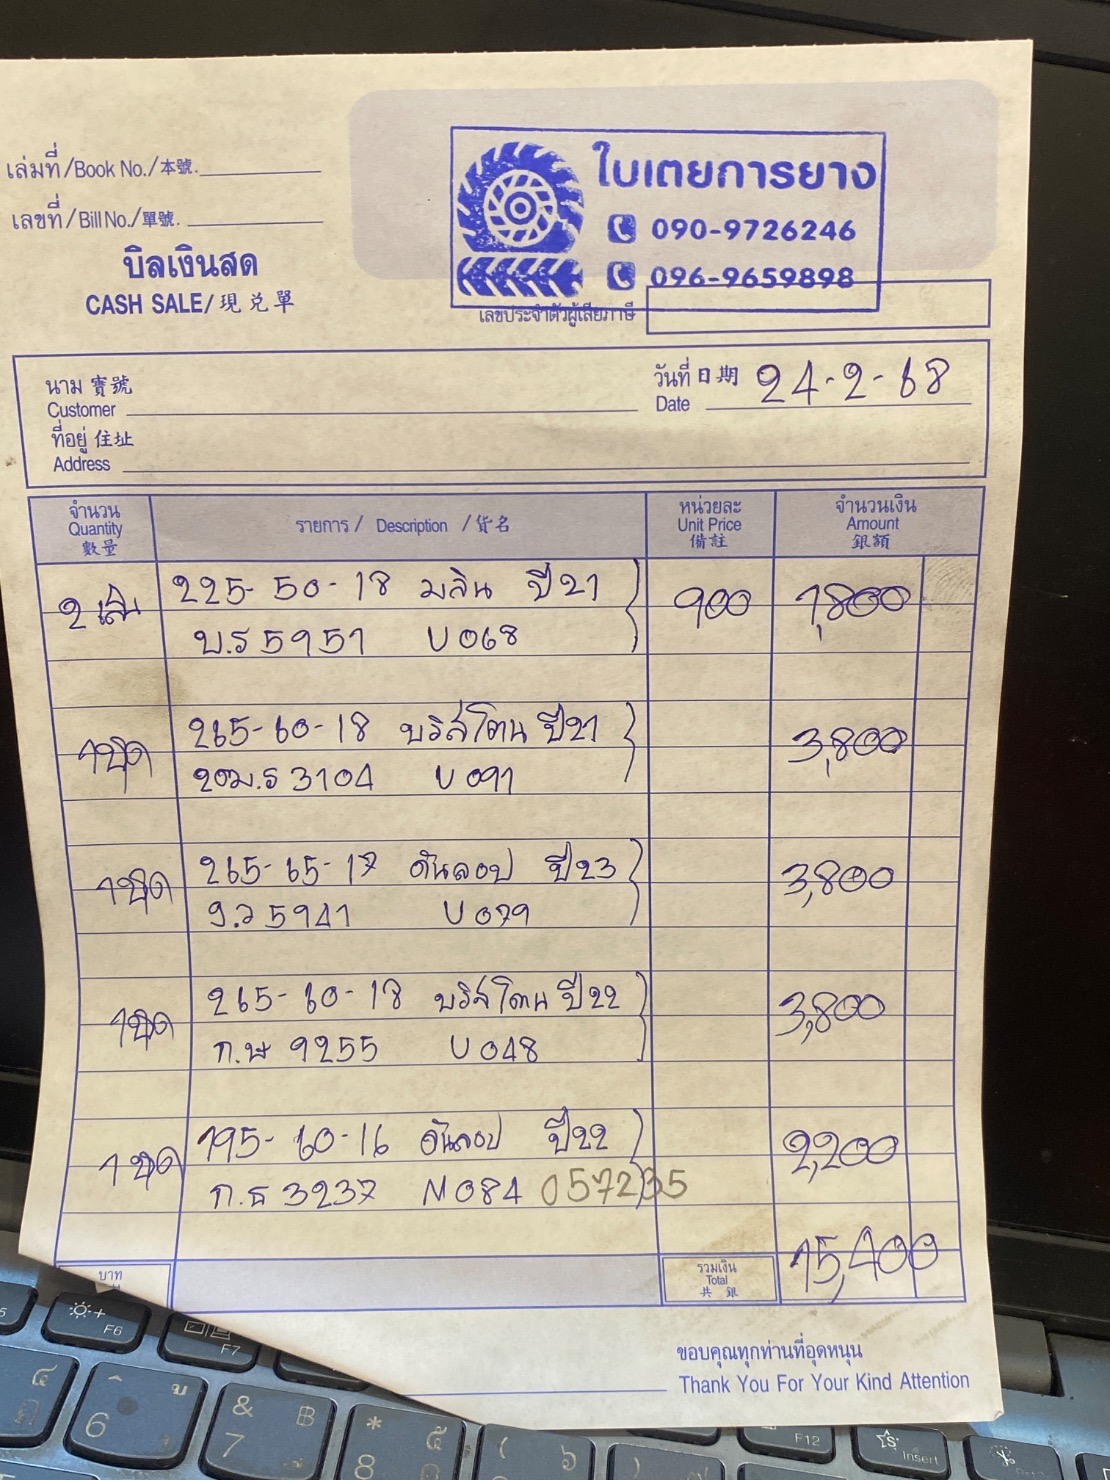 เล่มที่/Book No./本號.
เลขที่/Bill No./單號.
บิลเงินสด
CASH SALE/現兑單
ใบเตยการยาง
090-9726246
096-9659898
เลขประจำตัวผู้เสียภาษี
นาม 寶號
Customer
วันที่ 日期 24-2-68
Date
ที่อยู่ 住址
Address
จำนวน Quantity 數量 รายการ / Description / 貨名 หน่วยละ Unit Price 備註 จำนวนเงิน Amount 銀額
2 เส้น 225-50-18 มลิน ปี21 900 1,800
บ.ร 5951 U068
1ชุด 265-60-18 บริสโตน ปี21 3,800
2ฒ.ร 3104 U091
1ชุด 265-65-17 ดันลอป ปี23 3,800
5941 U079
1ชุด 265-60-18 บริสโตน ปี22 3,800
ก.ษ 9255 U048
1ชุด 195-60-16 ดันลอป ปี22 2,200
ก.ธ 3237 N084 057235
บาท
รวมเงิน Total 共銀 15,400
ขอบคุณทุกท่านที่อุดหนุน
Thank You For Your Kind Attention
F6
F7
6
&
7
*
8
F12
Insert